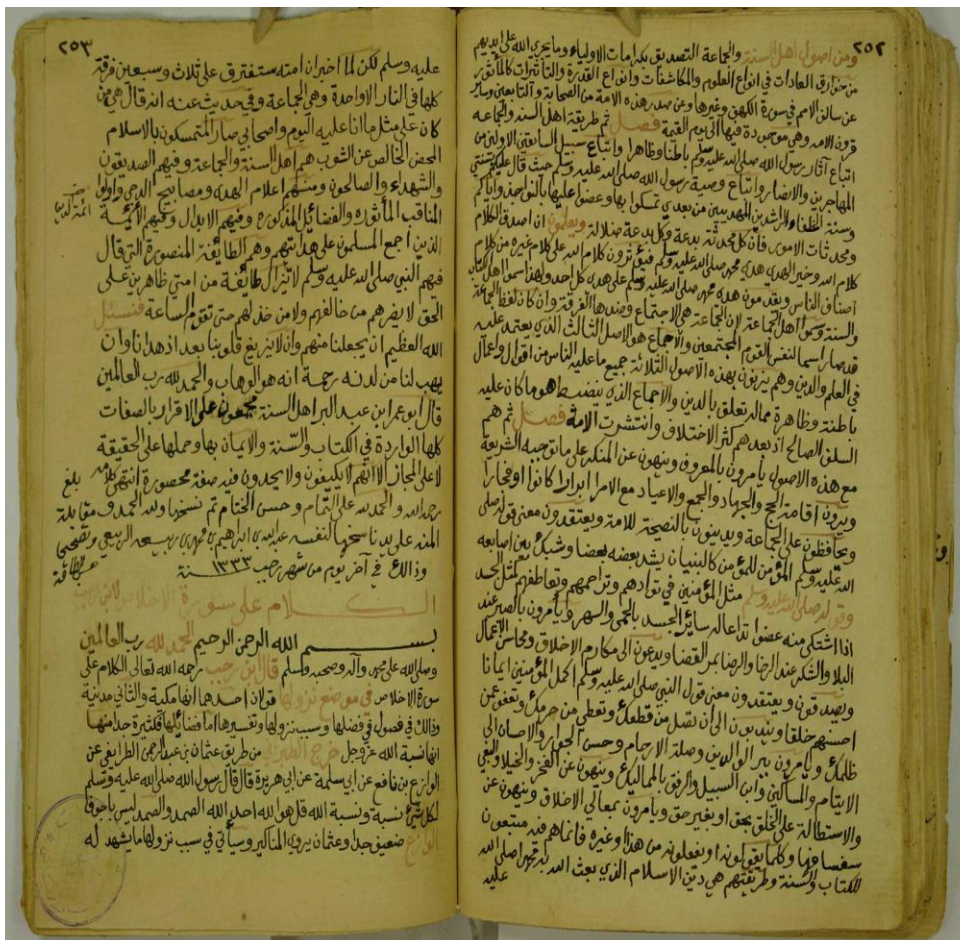 ٢٥٢
ومن اصول اهل السنة والجماعة التصديق بكرامات الاولياء وما يجري الله على ايديهم
من خوارق العادات في انواع العلوم والمكاشفات وانواع القدرة والتأثيرات كالمأثور
عن سالف الامم في سورة الكهف وغيرها وعن صدر هذه الامة من الصحابة والتابعين وساير
قرون الامه وهي موجودة فيها الى يوم القيمة فصل ثم طريقة اهل السنه والجماعه
اتباع آثار رسول الله صلى الله عليه وسلم باطنا وظاهرا واتباع سبيل السابقين الاولين من
المهاجرين والانصار واتباع وصية رسول الله صلى الله عليه وسلم حيث قال عليكم بسنتي
وسنة الخلفاء الراشدين المهديين من بعدي تمسكوا بها وعضوا عليها بالنواجذ واياكم
ومحدثات الامور فان كل محدثة بدعة وكل بدعة ضلالة ويعلمون ان اصدق الكلام
كلام الله وخير الهدي هدي محمد صلى الله عليه وسلم فيؤثرون كلام الله على كلام غيره من كلام
اصناف الناس ويقدمون هدي محمد صلى الله عليه وسلم على هدي كل احد ولهذا سموا اهل الكتاب
والسنة وسموا اهل الجماعة لان الجماعة هي الاجتماع وضدها الفرقة وان كان لفظ الجماعة
قد صار اسما لنفس القوم المجتمعين والاجماع هو الاصل الثالث الذي يعتمد عليه
في العلم والدين وهم يزنون بهذه الاصول الثلاثة جميع ما عليه الناس من اقوال واعمال
باطنة وظاهرة مما له تعلق بالدين والاجماع الذي ينضبط هو ما كان عليه
السلف الصالح اذ بعدهم كثر الاختلاف وانتشرت الامة فصل ثم هم
مع هذه الاصول يأمرون بالمعروف وينهون عن المنكر على ما توجبه الشريعة
ويرون اقامة الحج والجهاد والجمع والاعياد مع الامرا ابرارا كانوا او فجارا
ويحافظون على الجماعة ويدينون بالنصيحة للامة ويعتقدون معنى قوله صلى
الله عليه وسلم المؤمن للمؤمن كالبنيان يشد بعضه بعضا وشبك بين اصابعه
وقوله صلى الله عليه وسلم مثل المؤمنين في توادهم وتراحمهم وتعاطفهم كمثل الجسد
اذا اشتكى منه عضوا تداعا له سائر الجسد بالحمى والسهر ويأمرون بالصبر عند
البلا والشكر عند الرخا والرضا بمر القضا ويدعون الى مكارم الاخلاق ومحاسن الاعمال
ويصدقون ويعتقدون معنى قول النبي صلى الله عليه وسلم اكمل المؤمنين ايمانا
احسنهم خلقا ويندبون الى ان تصل من قطعك وتعطي من حرمك وتعفو عن
ظلمك ويأمرون ببر الوالدين وصلة الارحام وحسن الجوار والاحسان الى
الايتام والمساكين وابن السبيل والرفق بالمماليك وينهون عن الفخر والخيلا والبغي
والاستطالة على الخلق بحق او بغير حق ويأمرون بمعالي الاخلاق وينهون عن
سفسافها وكلما يقولونه او يفعلونه من هذا وغيره فانما هم فيه متبعون
للكتاب والسنة وطريقتهم هي دين الاسلام الذي بعث الله به محمدا صلى الله
عليه
٢٥٣
عليه وسلم لكن لما اخبر ان امته ستفترق على ثلاث وسبعين فرقة
كلها في النار الا واحدة وهي الجماعة وفي حديث عنه انه قال هي من
كان على مثل ما انا عليه اليوم واصحابي صار المتمسكون بالاسلام
المحض الخالص عن الشوب هم اهل السنة والجماعة وفيهم الصديقون
والشهداء والصالحون ومنهم اعلام الهدى ومصابيح الدجى واولوا
المناقب المأثوره والفضائل المذكوره وفيهم الابدال وفيهم الأئمة
ائمة الدين
الذين اجمع المسلمون على هدايتهم وهم الطايفة المنصورة التي قال
فيهم النبي صلى الله عليه وسلم لا تزال طائفة من امتي ظاهرين على
الحق لا يضرهم من خالفهم ولا من خذلهم حتى تقوم الساعة فنسئل
الله العظيم ان يجعلنا منهم وان لا يزيغ قلوبنا بعد اذ هدانا وان
يهب لنا من لدنه رحمة انه هو الوهاب والحمد لله رب العالمين
قال ابو عمر ابن عبد البر اهل السنة مجمعون على الاقرار بالصفات
كلها الواردة في الكتاب والسنة والايمان بها وحملها على الحقيقة
لا على المجاز الا انهم لا يكيفون ولا يحدون فيه صفة محصورة انتهى كلامه
رحمه الله والحمد لله على التمام وحسن الختام تم نسخها ولله الحمد و
المنه على يد ناسخها لنفسه عبدالله بن ابراهيم بن محمد بن ربيعه الربيعي
وذالك في آخر يوم من شهر رجب ١٣٣٣ سنة
بلغ
مقابلة
وتصحيح
الكلام على سورة الاخلاص لابن رجب
بسم الله الرحمن الرحيم الحمد لله رب العالمين
وصلى الله على محمد وآله وصحبه وسلم قال ابن رجب رحمه الله تعالى الكلام على
سورة الاخلاص في موضع نزولها قولان احدهما انها مكية والثاني مدنية
وذالك في فصول في فضلها وسبب نزولها وتفسيرها اما فضائلها فكثيرة جدا منها
انها نسبة الله عز وجل خرج الطبراني من طريق عثمان بن عبد الرحمن الطرايفي عن
الوازع بن نافع عن ابي سلمة عن ابي هريرة قال قال رسول الله صلى الله عليه وسلم
لكل شيء نسبة ونسبة الله قل هو الله احد الله الصمد والصمد ليس باجوف
الوازع ضعيف جدا وعثمان يروي المناكير وسيأتي في سبب نزولها ما يشهد له